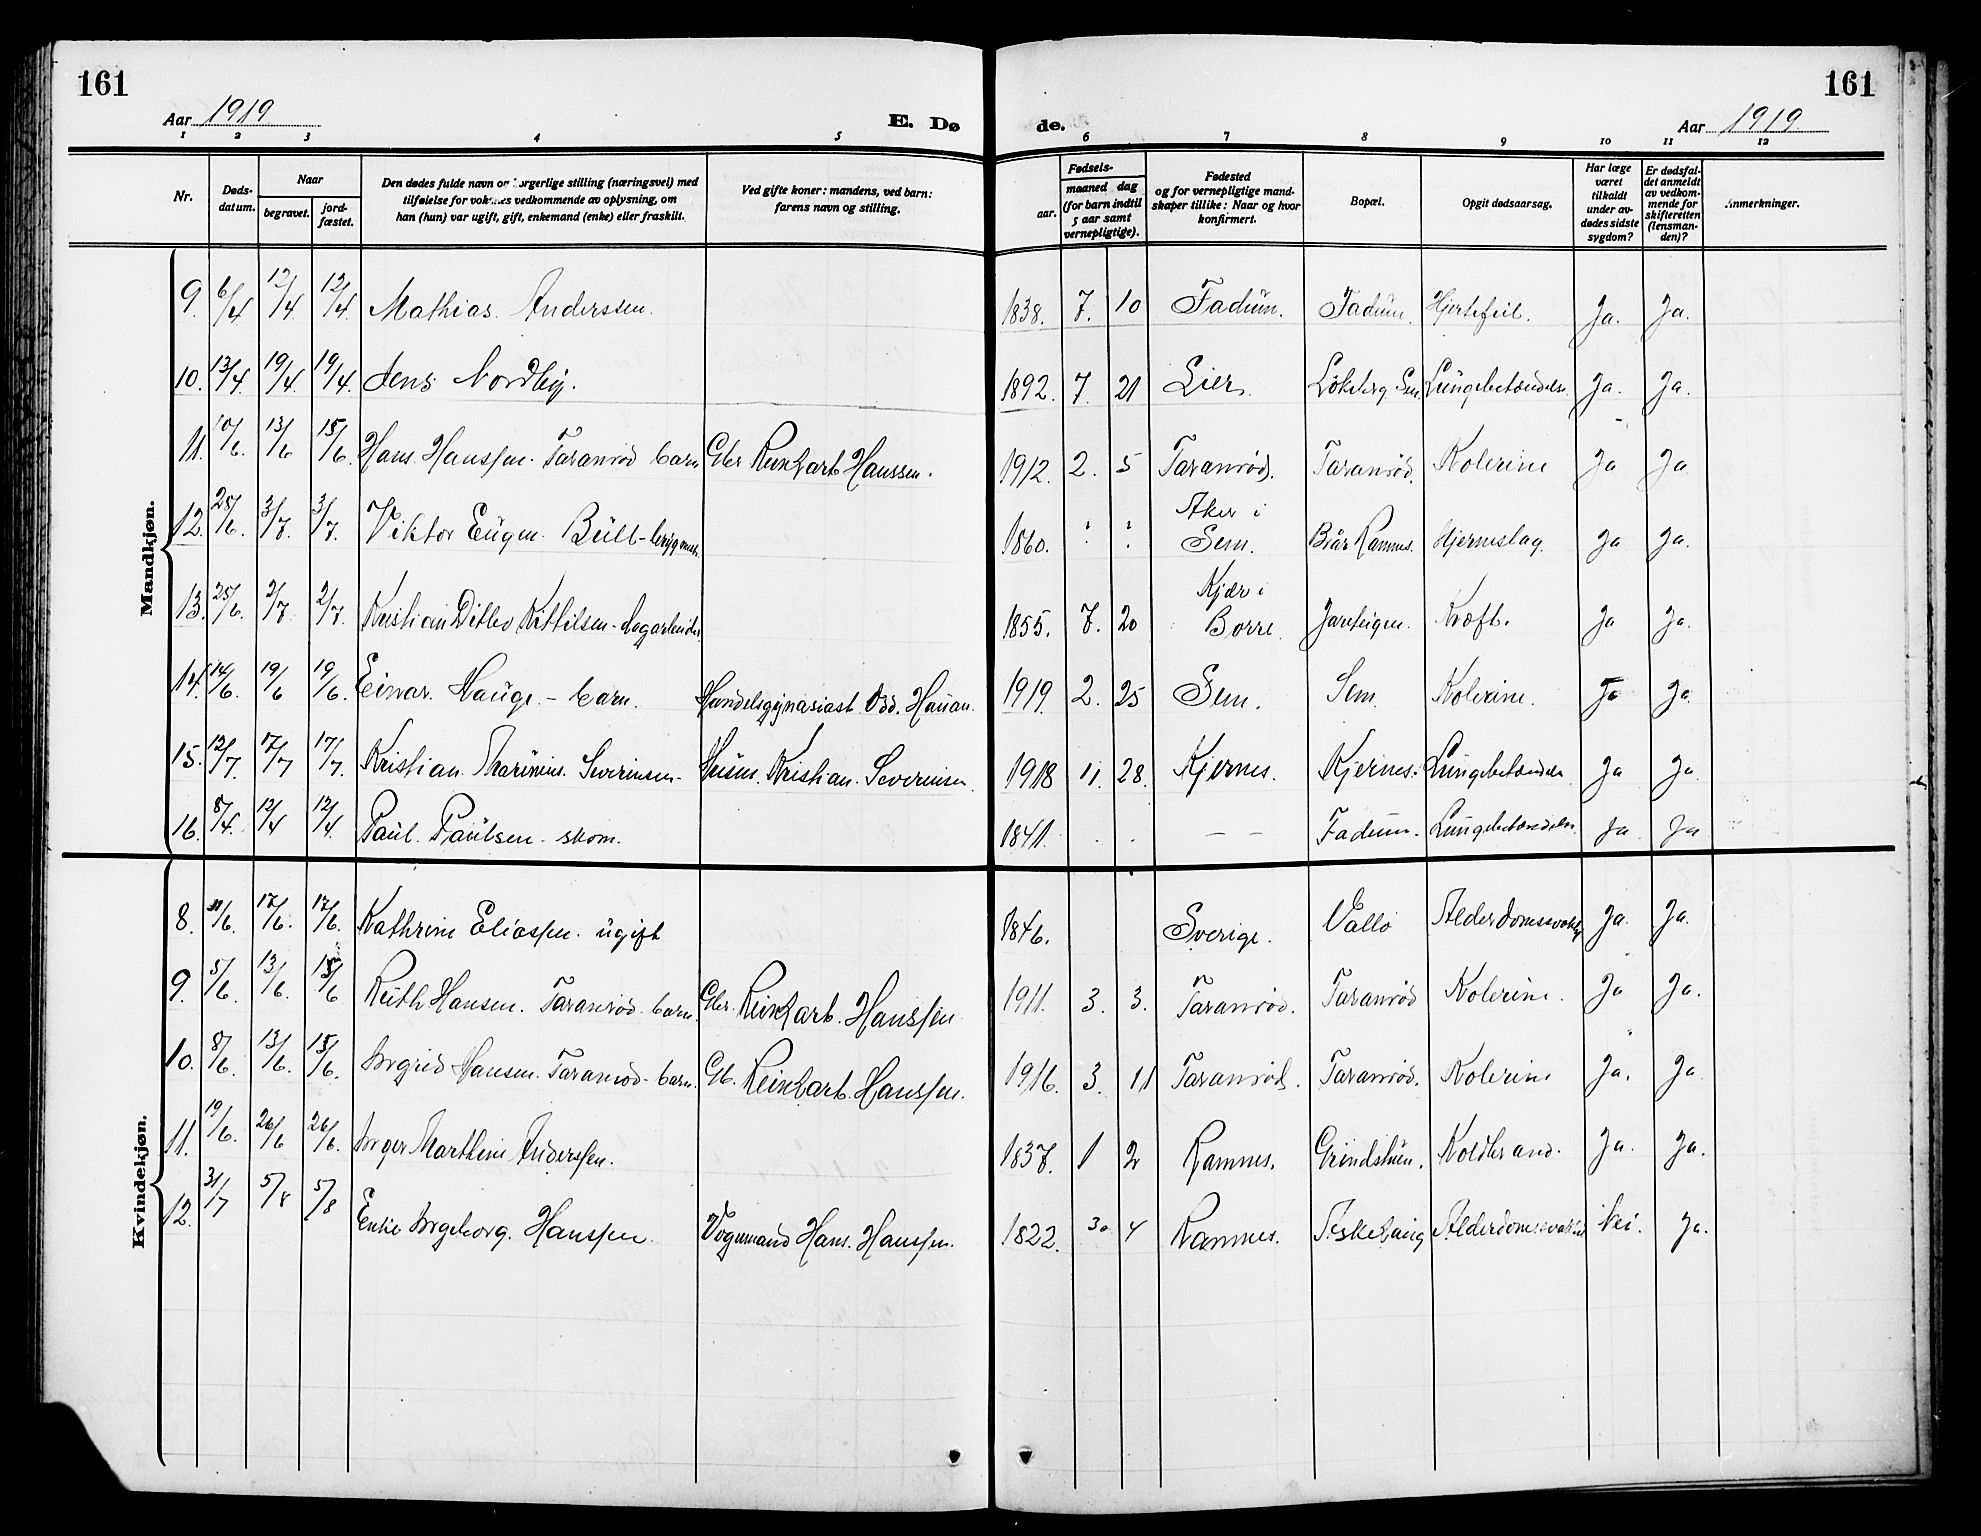 161
161
Aar 1919
E. Dø
de.
Aar 1919.
1 2 3 4 5 6 7 8 9 10 11 12
Nr.
Døds-
datum.
Naar
begravet.
jord-
fæstet.
Den dødes fulde navn og borgerlige stilling (næringsvei) med
tilføielse for voksnes vedkommende av oplysning, om
han (hun) var ugift, gift, enkemand (enke) eller fraskilt.
Ved gifte koner: mandens, ved barn:
farens navn og stilling.
Fødsels-
aar.
maaned dag
(for barn indtil
5 aar samt
vernepligtige).
Fødested
og for vernepligtige mand-
skaper tillike: Naar og hvor
konfirmert.
Bopæl.
Opgit dødsaarsag.
Har læge
været
tilkaldt
under av-
dødes sidste
sygdom?
Er dødsfal-
det anmeldt
av vedkom-
mende for
skifteretten
(lensman-
den)?
Anmerkninger.
Mandkjøn.
9. 6/4 12/4 12/4. Mathias Anderssen. 1838. 7. 10 Fadum. Fadum. Hjertefeil. Ja. Ja.
10. 13/4. 19/4. 19/4. Jens Nordby. 1892. 7. 21 Lier. Løkeberg Sem. Lungebetændelse Ja. Ja.
11. 10/6. 13/6 15/6. Hans Hanssen. Taranrød barn Gbr Reinhart Hanssen. 1912. 2. 5 Taranrød. Taranrød. Kolerine Ja Ja
12. 28/6. 3/7. 3/7. Viktor Eugen Bull - 1860. Aker i
Sem. Ramnes. Hjerneslag. Ja Ja.
13. 25/6. 2/7 2/7. Kristian Ditlev Kittilsen - dagarbeider 1855. 7. 20 Kjær i
Borre. Jareteigen. Kræft. Ja Ja.
14. 14/6. 19/6 19/6. Einar Hauge - barn. Handelsgymnasiast Odd. Hauan. 1919. 2. 25 Sem. Sem. Kolerine. Ja Ja.
15. 12/7 17/7 17/7. Kristian Marinius Severinsen - Husm. Kristian Severinsen 1918 11. 28. Kjernes. Kjernes. Lungebetændelse Ja Ja.
16. 8/4. 12/4 12/4. Paul Paulsen - skom. 1841. . . - - Fadum. Lungebetændelse Ja Ja
Kvindekjøn.
8. 11/6. 17/6. 17/6. Kathrine Eliassen. ugift 1846. Sverige. Vallø Alderdomssvakhet Ja. Ja.
9. 5/6. 13/6. 15/6 Ruth Hansen. Taranrød. barn. Gbr. Reinhart Hanssen 1911. 3. 3. Taranrød. Taranrød Kolerine. Ja Ja.
10. 8/6. 13/6. 15/6. Ingrid Hansen. Taranrød - barn. Gb. Reinhart Hanssen. 1916. 3. 11 Taranrød. Taranrød. Kolerine Ja. Ja
11. 19/6. 26/6 26/6. Inger Marthine Anderssen. 1837. 1 2 Ramnes. Grindstuen. Koldbrand. Ja. Ja.
12. 31/7 5/8 5/8 Enke Ingeborg Hanssen. Vognmand Hans Hanssen. 1822. 4 Ramnes. Askehaug Alderdomssvakhet Nei. Ja.